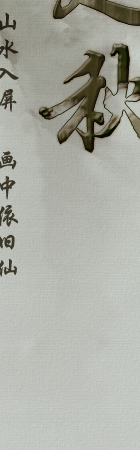 秋
山水入屏
画中依旧仙